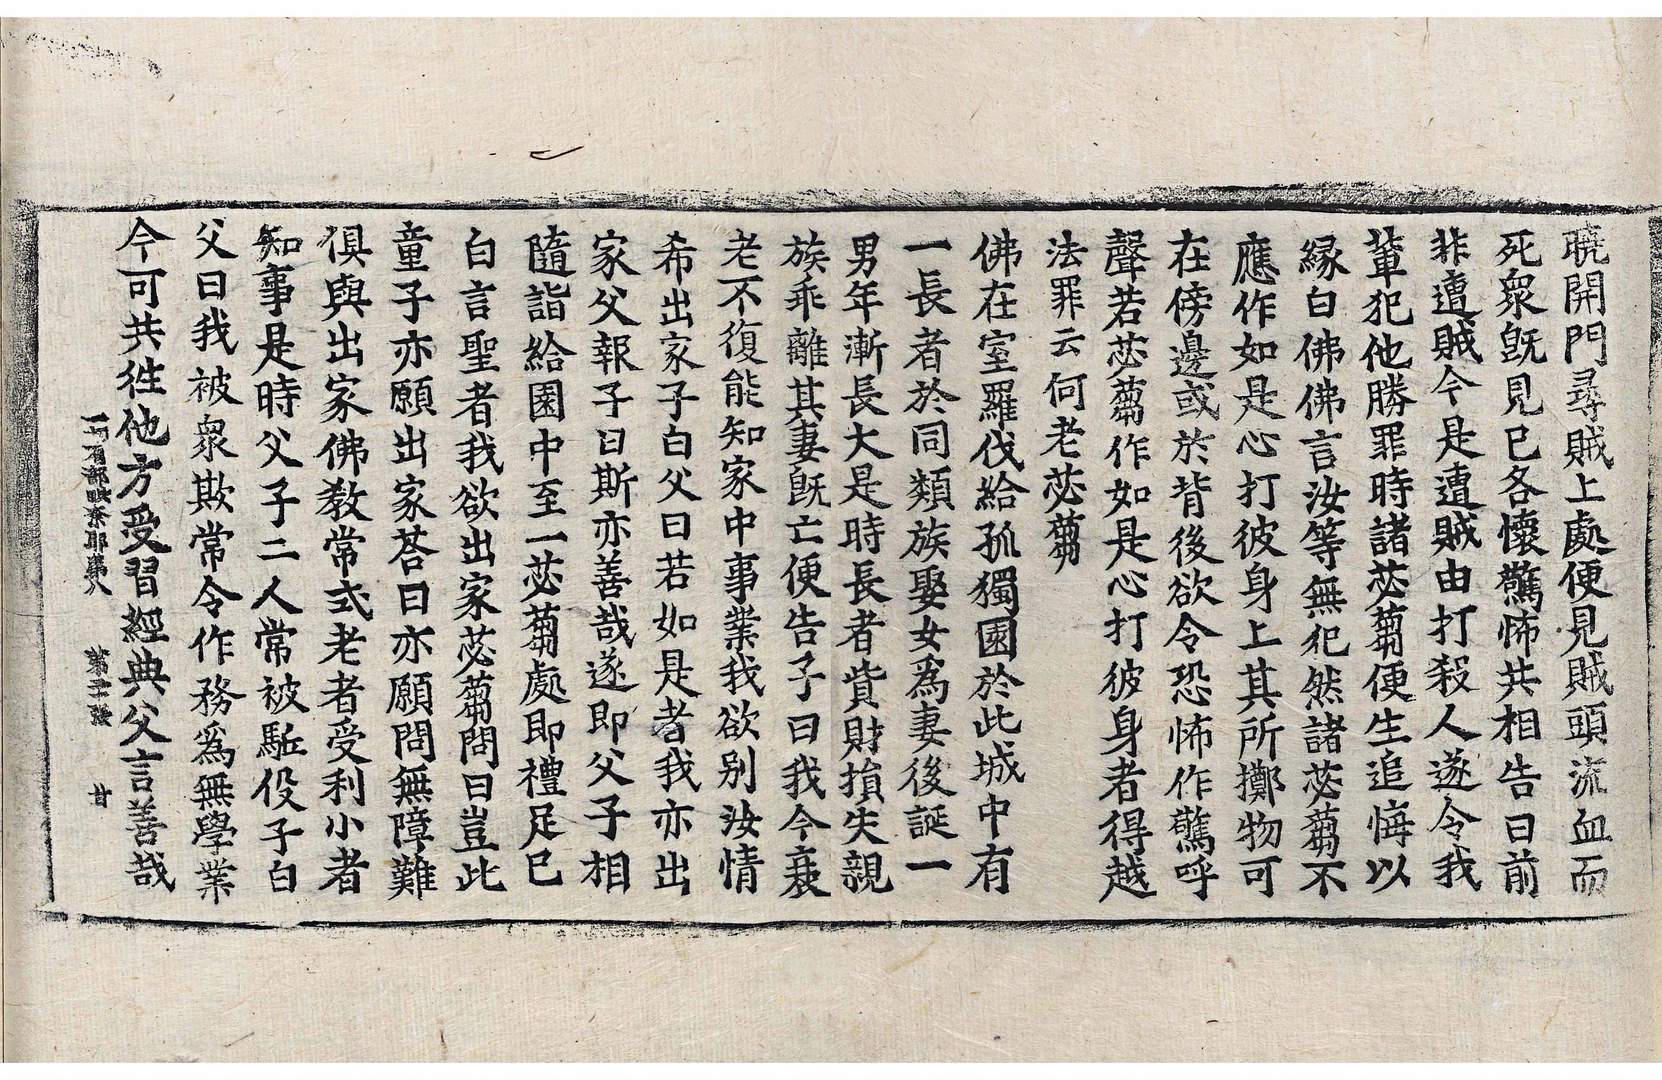 曉開門尋賊上處便見賊頭流血而
死衆旣見已各懷驚怖共相告曰前
非遭賊今是遭賊由打殺人遂令我
輩犯他勝罪時諸苾蒭便生追悔以
縁白佛佛言汝等無犯然諸苾蒭不
應作如是心打彼身上其所擲物可
在傍邊或於背後欲令恐怖作驚呼
聲若苾蒭作如是心打彼身者得越
法罪云何老苾蒭
佛在室羅伐給孤獨園於此城中有
一長者於同類族娶女爲妻後誕一
男年漸長大是時長者貲財損失親
族乖離其妻旣亡便告子曰我今衰
老不復能知家中事業我欲別汝情
希出家子白父曰若如是者我亦出
家父報子曰斯亦善哉遂即父子相
隨詣給園中至一苾蒭處即禮足已
白言聖者我欲出家苾蒭問曰豈此
童子亦願出家荅曰亦願問無障難
俱與出家佛教常式老者受利小者
知事是時父子二人常被駈役子白
父曰我被衆欺常令作務爲無學業
今可共徃他方受習經典父言善哉
一切有部毗奈耶第八 第二十張 甘